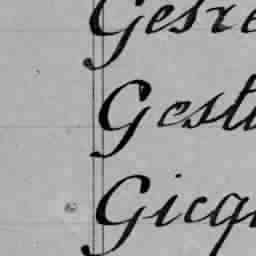 Gesre
Gestu
Gicqu